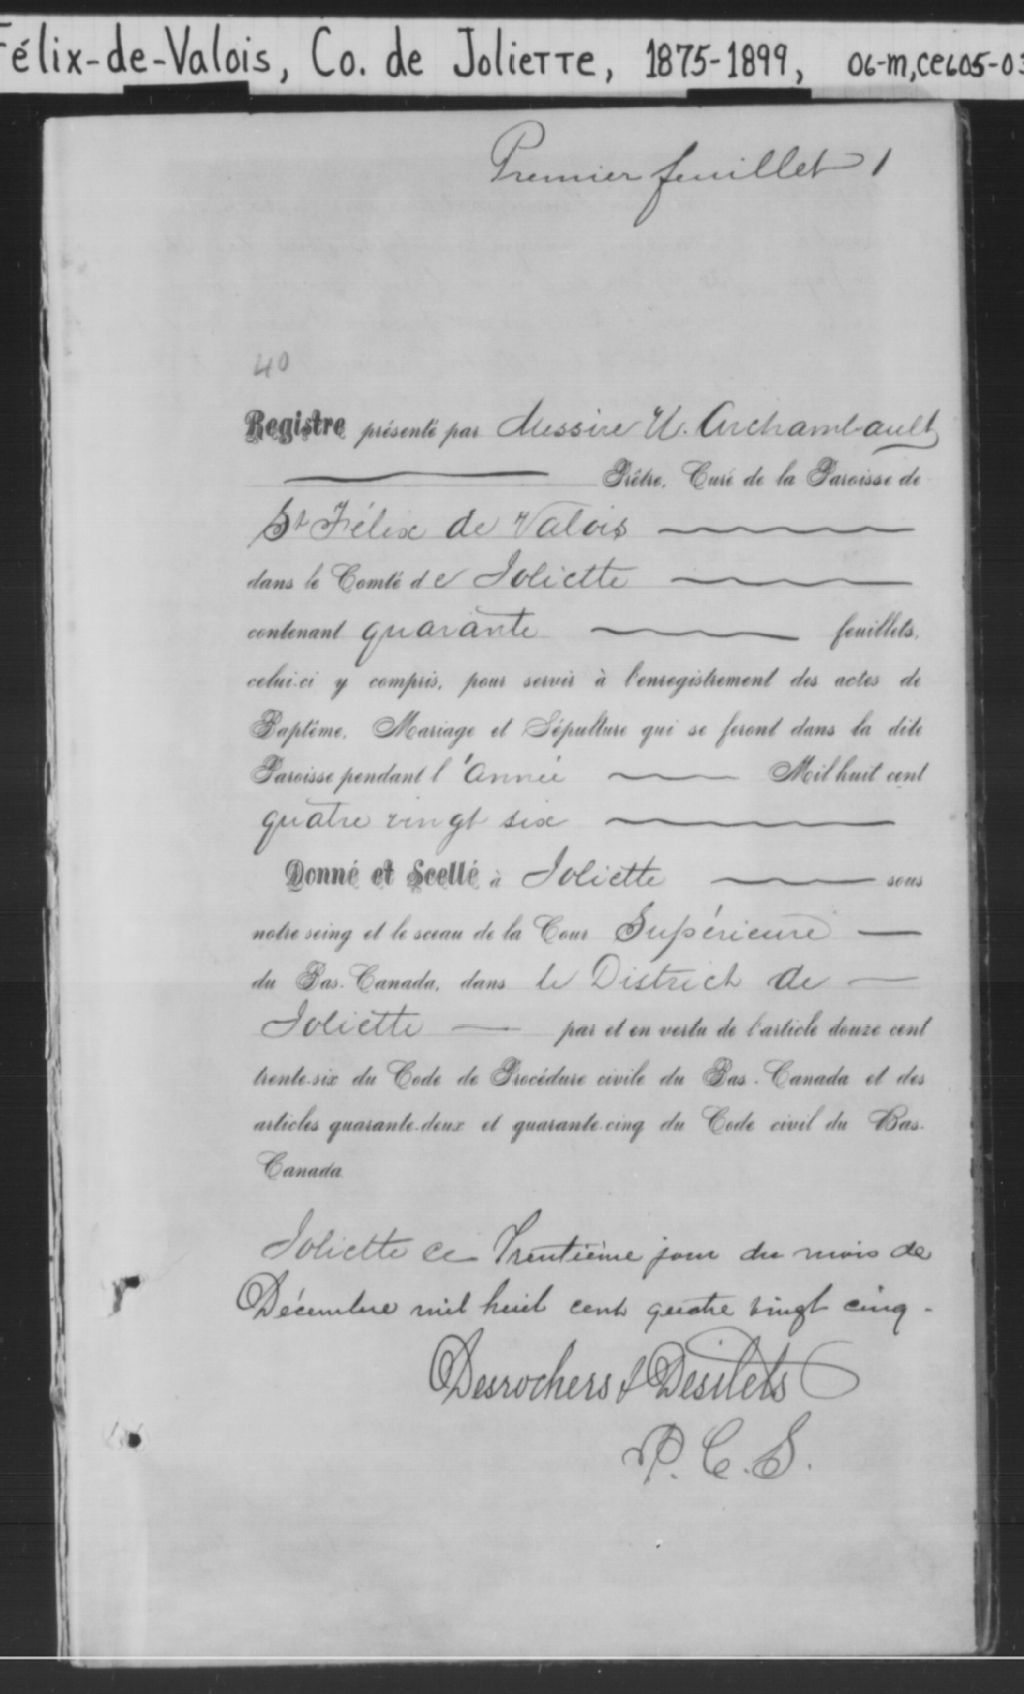 Félix-de-Valois, Co. de Joliette, 1875-1899, 06-m,ce605-03
Premier feuillet 1
40
Registre présenté par Messire U. Archambault
Prêtre, Curé de la Paroisse de
St Félix de Valois
dans le Comté de Joliette
contenant quarante feuillets,
celui-ci y compris, pour servir à l'enregistrement des actes de
Baptême, Mariage et Sépulture qui se feront dans la dite
Paroisse pendant l'année Mil huit cent
quatre vingt six
Donné et Scellé à Joliette sous
notre seing et le sceau de la Cour Supérieure
du Bas-Canada, dans le District de
Joliette par et en vertu de l'article douze cent
trente-six du Code de Procédure civile du Bas-Canada et des
articles quarante-deux et quarante-cinq du Code civil du Bas-
Canada.
Joliette ce Trentième jour du mois de
Décembre mil huit cent quatre vingt cinq -
Desrochers & Desilets
P. C. S.